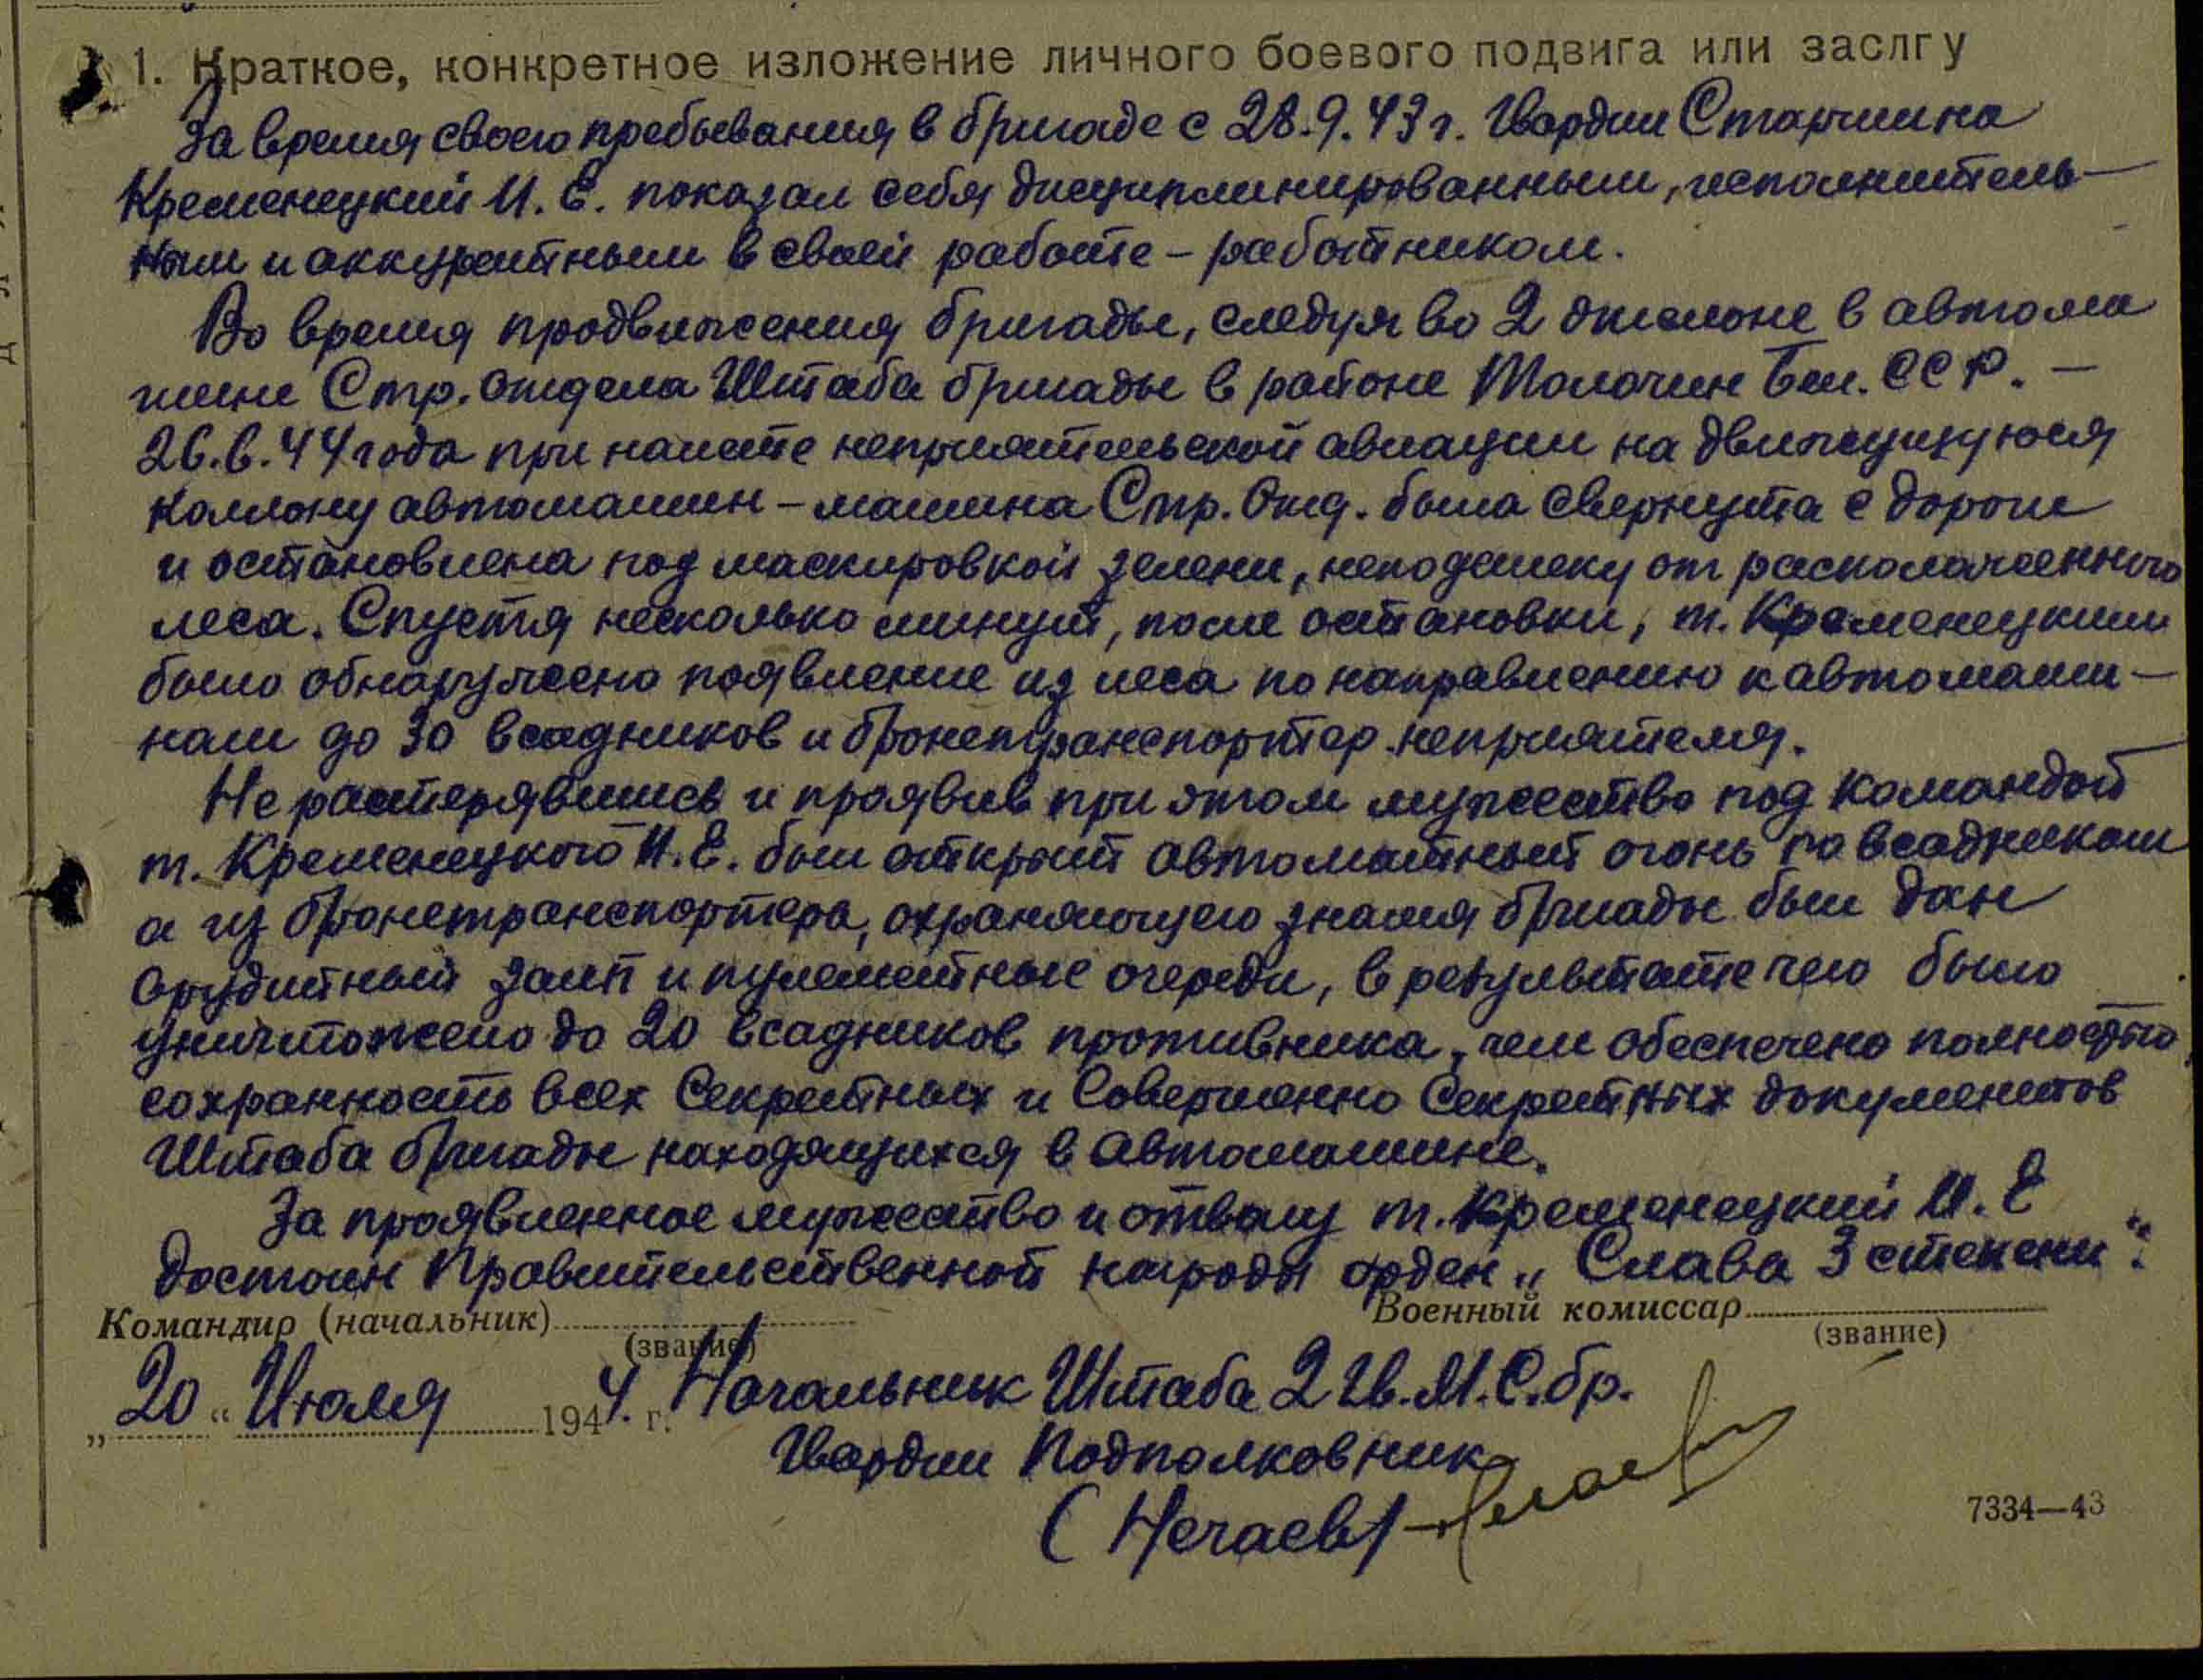 1. Краткое, конкретное изложение личного боевого подвига или заслгу
За время своего пребывания в бригаде с 28.9.43 г. Гвардии Старшина
Кременецкий И. Е. показал себя дисциплинированным, исполнитель-
ным и аккуратным в своей работе – работником.
Во время продвижения бригады, следуя во 2 эшелоне в автома
шине Стр. отдела Штаба бригады в районе Толочин Бел. ССР. –
26.6.44 года при налете неприятельской авиации на движущуюся
колонну автомашин – машина Стр. Отд. была свернута с дороги
и остановлена под маскировкой зелени, неподалеку от расположенного
леса. Спустя несколько минут, после остановки, т. Кременецким
было обнаружено появление из леса по направлению к автомаши-
нам до 30 всадников и бронетранспортер неприятеля.
Не растерявшись и проявив при этом мужество под командой
т. Кременецкого И. Е. был открыт автоматный огонь по всадникам
а из бронетранспортера, охраняющего знамя бригады был дан
орудийный залп и пулеметные очереди, в результате чего было
уничтожено до 20 всадников противника, чем обеспечено полностью
сохранность всех Секретных и Совершенно Секретных документов
Штаба бригады находящихся в автомашине.
За проявленное мужество и отвагу т. Кременецкий И. Е
достоин Правительственной награды орден „Слава 3 степени".
Командир (начальник) Военный комиссар
(звание) (звание)
„20" Июля 1944 г. Начальник Штаба 2 Гв. М. С. бр.
Гвардии Подполковник
(Нечаев)
7334—43